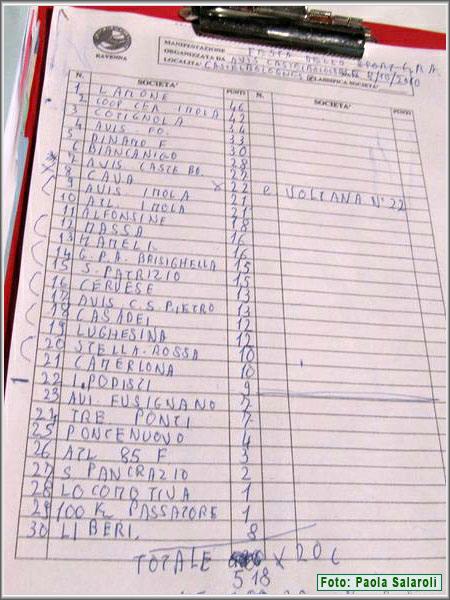 RAVENNA
MANIFESTAZIONE FESTA DELLO SPORT G.R.A.
ORGANIZZATA DA AVIS CASTELBOLOGNESE 3/10/2010
LOCALITÀ CASTELBOLOGNESE CLASSIFICA SOCIETA'
N. SOCIETA' PUNTI N. SOCIETA' PUNTI
1 LAMONE 46
2 COOP CEA IMOLA 42
3 COTIGNOLA 34
4 AVIS. FO. 33
5 AINAMO F 30
6 BIANCANIGO 28
7 AVIS CASTE BO. 22
8 CAVA X 22 e VOLTANA N° 22
9 AVIS IMOLA 21
10 ATL. IMOLA 21
11 ALFONSINE 18
12 MASSA 16
13 MAMELI 16
14 G.P.A. BRISIGHELLA 15
15 S. PATRIZIO 15
16 CERVESE 13
17 AVIS C.S. PIETRO 13
18 CASADEI 12
19 LUGHESINA 12
20 STELLA-ROSSA 10
21 CAMERLONA 10
22 I. PODISTI 9
23 AVI. FUSIGNANO 7
24 TRE PONTI 7
25 PONTENUOVO 4
26 ATL 85 F 3
27 S PANCRAZIO 2
28 LOCOMOTIVA 1
29 100 K PASSATORE 1
30 LIBERI 8
TOTALE X 20 C
518
Foto: Paola Salaroli